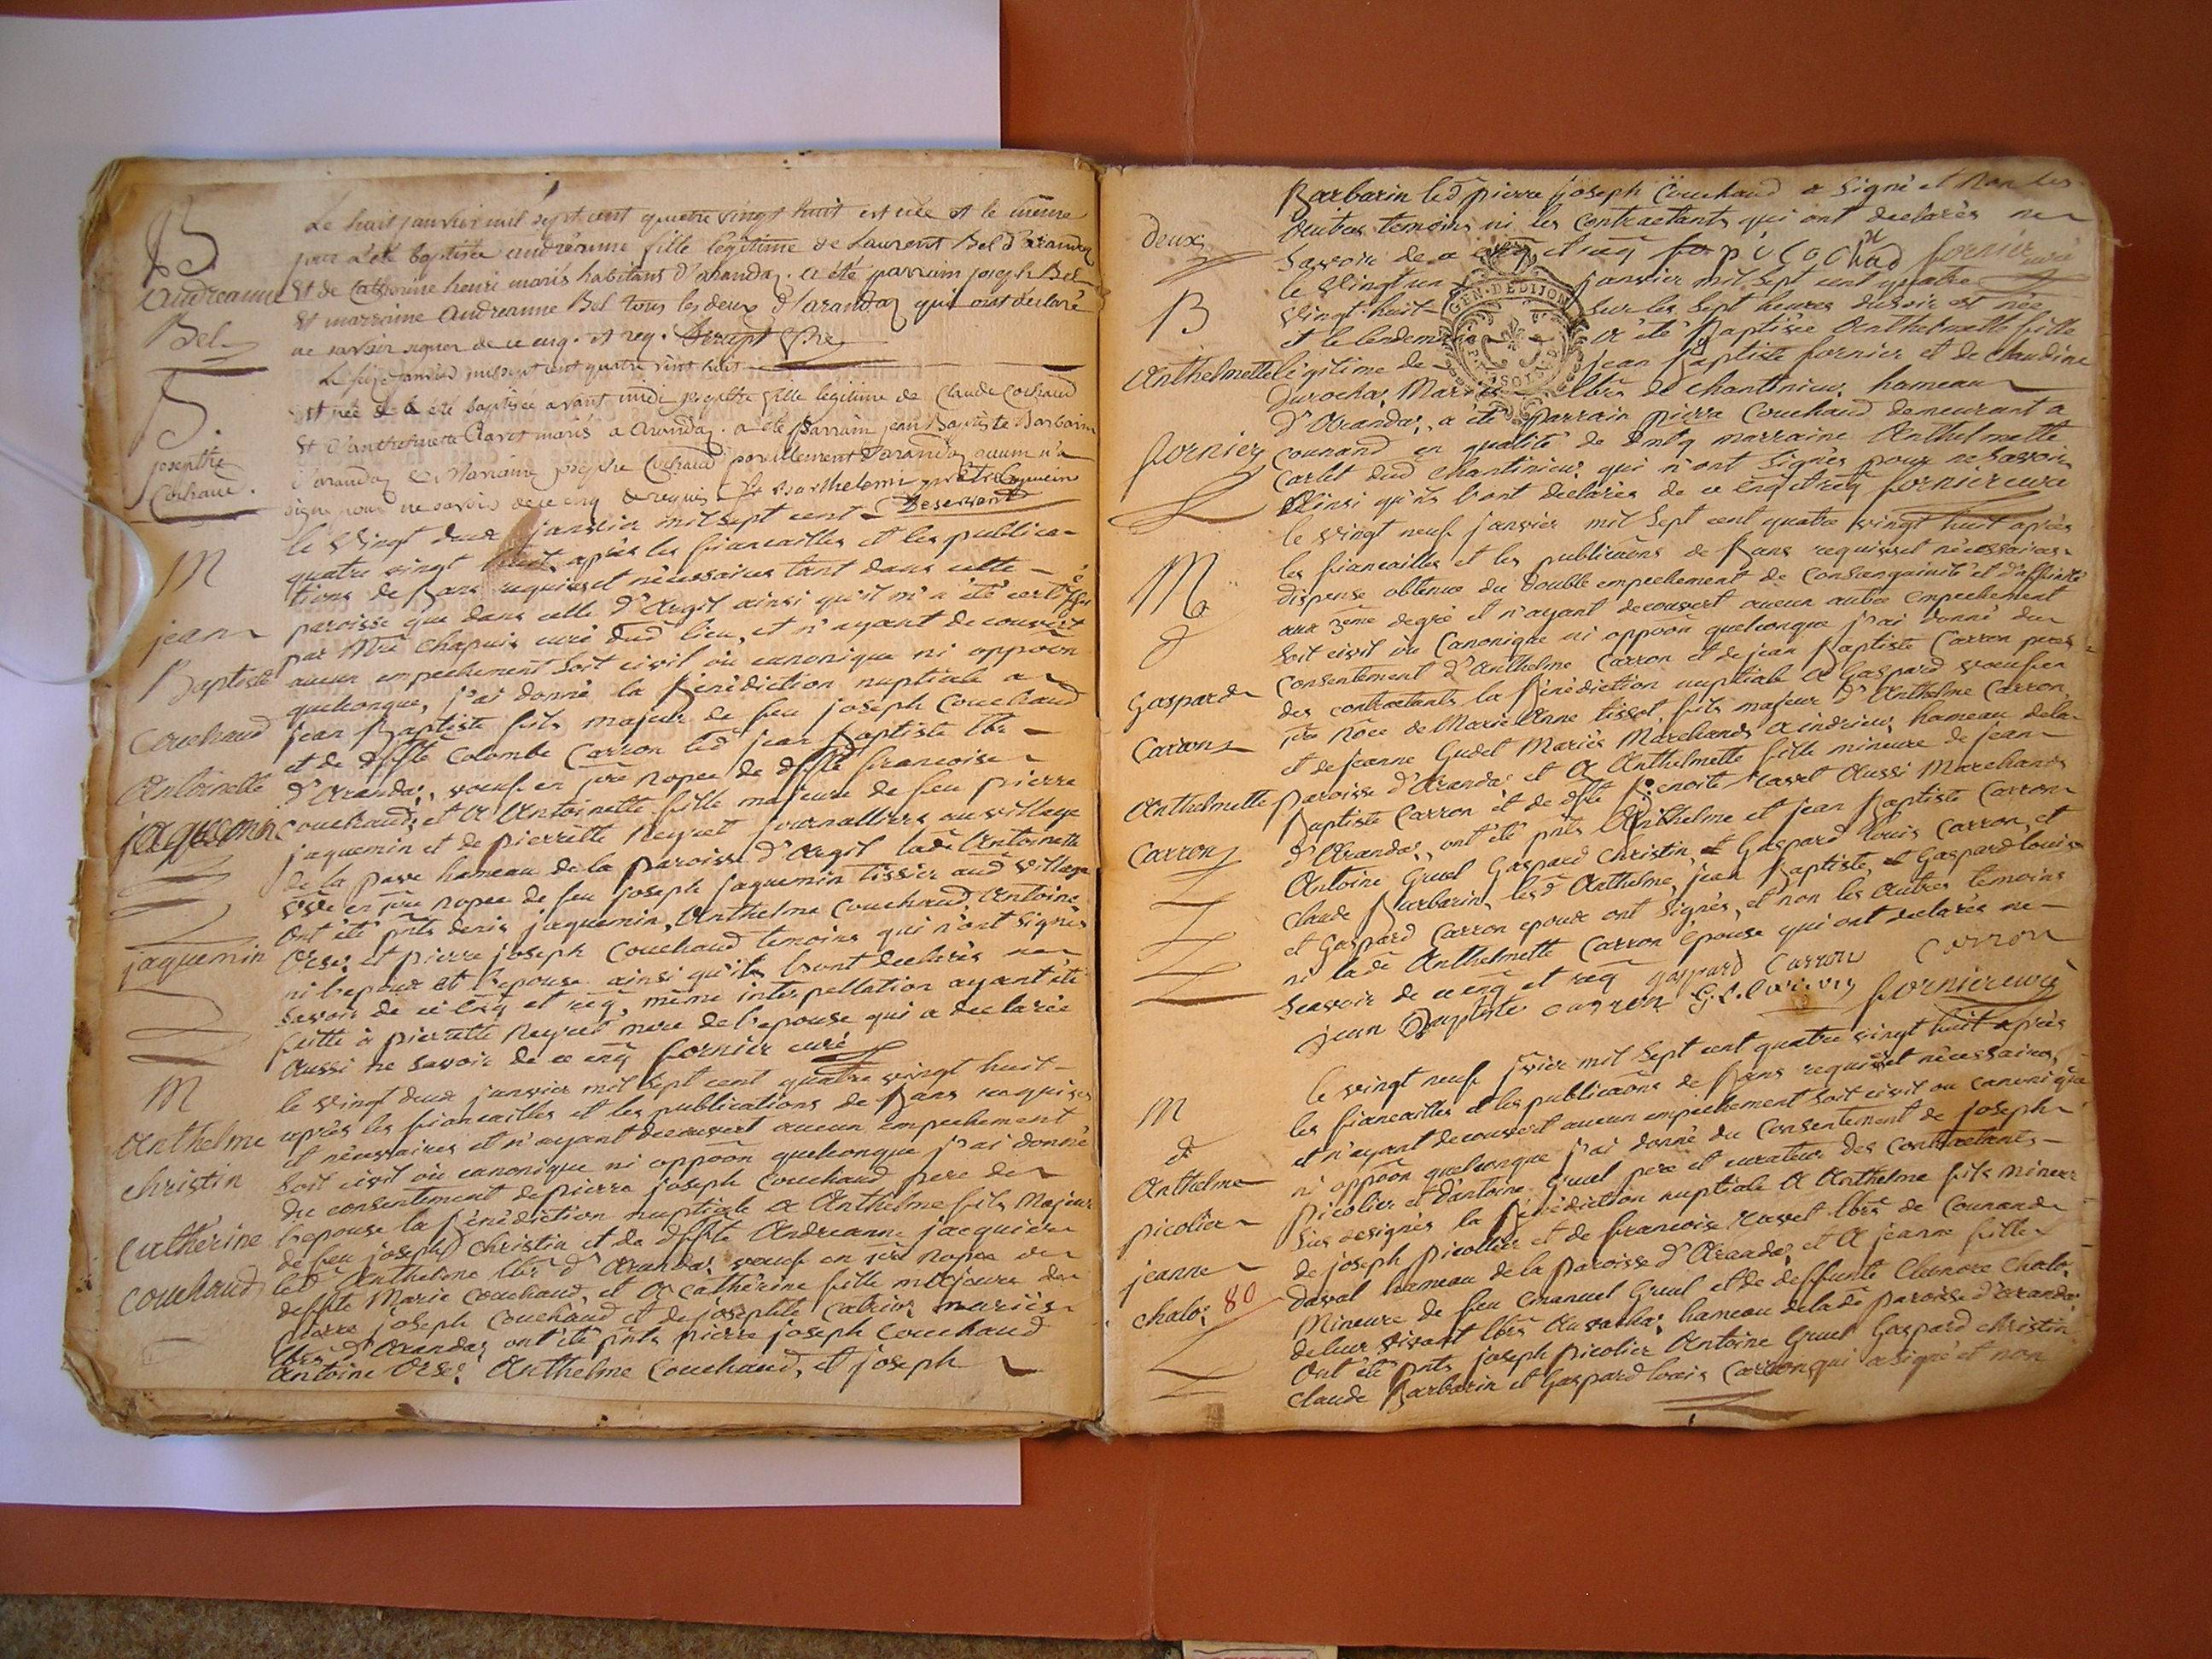 B
Le huit janvier mil sept cent quatre vingt huit est née et le même
jour a été baptisée andréanne fille légitime de Laurent Bel d'arandaz
andreanne
et de Catherine henri mariés habitans d'arandaz. a été parrain joseph Bel
et marraine andreanne Bel tous les deux d'arandaz qui ont déclaré
Bel
ne savoir signer de ce enq. et req.
Le janvier mil sept cent quatre vint huit
B.
est née & a été baptisée avant midi josephte fille legitime de Claude Cochaud
et d'anthelmette Ravet mariés a arandaz. a été parrain jean Baptiste Barbarin
josephte
d'arandaz & Marraine josephte Cochaud pareillement d'arandaz aucun n'a
Cochaud.
signé pour ne savoir de ce enq & requis Barthelemi prêtre
Desservant
le vingt deux janvier mil sept cent
M
quatre vingt huit après les fiancailles et les publica-
tions de bans requises et nécessaires tant dans cette
paroisse que dans celle d'Argil ainsi qu'il m'a été certifié
jean
par Mre Chapuis curé dud lieu, et n'ayant decouvert
Baptiste
aucun empechement soit civil où canonique ni oppoôn
quelconque, j'ai donné la Bénédiction nuptiale a
Couchaud
jean Baptiste fils majeur de feu joseph Couchaud
et de dffte Colombe Carron led jean Baptiste lbr
Antoinette
d'Arandas, voeuf en pre nopce de dffte francoise
jaquemin
Couchaud; et a Antoinette fille majeure de feu pierre
jaquemin et de pierrette Reyret journalliers au village
de la pave hameau de la paroisse d'Argil lade Antoinette
vve en pre nopce de feu joseph jaquemin tissier aud village
ont été pnts denis jaquemin, Anthelme Couchaud, Antoine
jaquemin
Orset et pierre joseph Couchaud temoins qui n'ont signés
ni l'epoux et l'epouse ainsi qu'ils l'ont declarés ne
savoir de ce enq et req, même interpellation ayant été
faitte à pierrette Reyret mere de l'epouse qui a declarée
aussi ne savoir de ce enq fornier curé
M
le vingt deux janvier mil sept cent quatre vingt huit
après les fiancailles et les publications de bans requises
Anthelme
et nécessaires et n'ayant decouvert aucun empechement
soit civil où canonique ni oppoôn quelconque j'ai donné
christin
du consentement de pierre joseph Couchaud pere de
l'epouse la Bénédiction nuptiale a Anthelme fils majeur
Catherine
de feu joseph Christin et de dffte Andreanne jacquier
led Anthelme lbr d'Arandas voeuf en pre nopce de
Couchaud
deffte Marie Couchaud, et a Catherine fille majeure de
pierre joseph Couchaud et de josephte mariés
lbrs d'Arandas ont été pnts pierre joseph Couchaud
Antoine Orset Anthelme Couchaud, et joseph
Barbarin led pierre joseph Couchaud a signé et non les
deux
autres temoins ni les contractants qui ont declarés ne
savoir de ce enq et req Cochad fornier curé
le vingt un janvier mil sept cent quatre
B
vingt huit sur les sept heures du soir est née
et le lendemain a été Baptisée Anthelmette fille
Anthelmette
légitime de jean Baptiste fornier et de Claudine
Durochat Mariés lbrs de chantinieux hameau
d'Arandas, a été parrain pierre Couchaud demeurant a
fornier
counand en qualité de marraine Anthelmette
Carlet dud chantinieux qui n'ont signés pour ne savoir
Ainsi qu'ils l'ont declarés de ce enq et req fornier curé
le vingt neuf janvier mil sept cent quatre vingt huit après
M
les fiancailles et les publicaôns de bans requises et nécessaires
dispense obtenue du double empechement de consanguinité et d'affinité
&
aux 3eme degré et n'ayant decouvert aucun autre empechement
soit civil où Canonique ni oppoôn quelconque j'ai donné du
consentement d'Anthelme Carron et de jean Baptiste Carron peres
Gaspard
des contractants la Bénédiction nuptiale a Gaspard voeuf en
pre nôce de Marie Anne tissot, fils majeur d'Anthelme Carron
Carron
et de jeanne Gudet Mariés Marchands a indrieux hameau de la
Anthelmette
paroisse d'Arandas et a Anthelmette fille mineure de jean
Baptiste Carron et de dfte Benoite Ravet Aussi Marchands
Carron
d'Arandas, ont été pnts Anthelme et jean Baptiste Carron
Antoine Gruel Gaspard Christin, et Gaspard Louis Carron, et
Claude Barbarin, lesd Anthelme, jean Baptiste, et Gaspard louis
et Gaspard Carron epoux ont signés, et non les autres temoins
ni lade Anthelmette Carron épouse qui ont declarés ne
savoir de ce enq et req gaspard Carron Carron
jean Baptiste carron G. L. Carron fornier curé
le vingt neuf jvier mil sept cent quatre vingt huit après
M
les fiancailles et les publicaôns de bans requises et nécessaires,
et n'ayant decouvert aucun empechement soit civil ou canonique
&
ni oppoôn quelconque j'ai donné du consentement de joseph
Anthelme
picolier et d'antoine Gruel pere et curateur des contractants
sus designés la Bénédiction nuptiale a Anthelme fils mineur
picolier
de joseph picollier et de francoise Ravet lbrs de Counand
jeanne
daval hameau de la paroisse d'Arandas, et a jeanne fille
chalo; 80
Mineure de feu Emanuel Gruel et de deffunte Eleonore Chalo;
de leur vivant lbrs hameau de lade paroisse d'Arandas
ont été pnts joseph picolier Antoine Gruel Gaspard Christin
Claude Barbarin et Gaspard louis Carron qui a signé et non
GEN. DE DIJON